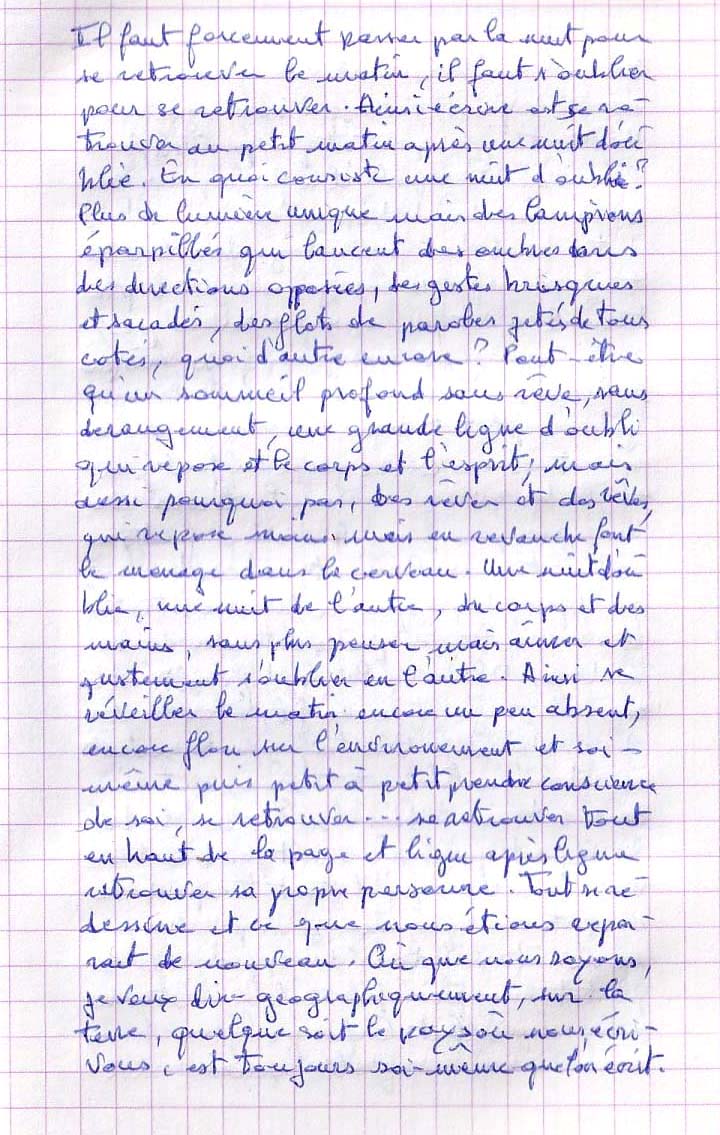 Il faut forcement passer par la nuit pour
se retrouver le matin, il faut s'oublier
pour se retrouver. Ainsi écrire est se re-
trouver au petit matin après une nuit d'ou
blie. En quoi consiste une nuit d'oubli?
Plus de lumière unique mais des lampions
éparpillés qui lancent des ombres dans
des directions opposées, des gestes brusques
et sacadés, des flots de paroles jetés de tous
cotés, quoi d'autre encore? Peut-être
qu'un sommeil profond sans rêve, sans
derangement, une grande ligne d'oubli
qui repose et le corps et l'esprit, mais
aussi pourquoi pas, des rêves et des rêves,
qui repose moins mais en revanche font
le menage dans le cerveau. Une nuit d'ou
blie, une nuit de l'autre, du corps et des
mains, sans plus penser mais aimer et
justement s'oublier en l'autre. Ainsi se
réveiller le matin encore un peu absent,
encore flou sur l'environement et soi-
même puis petit à petit prendre conscience
de soi, se retrouver... se retrouver tout
en haut de la page et ligne après ligne
retrouver sa propre personne. Tout se re-
dessine et ce que nous étions appa-
rait de nouveau. Où que nous soyons,
je veux dire geographiquement, sur la
terre, quelque soit le pays où nous écri-
vons, c'est toujours soi-même que l'on écrit.